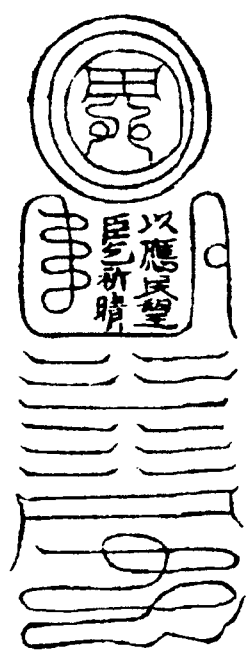 以應民望
臣乞祈晴